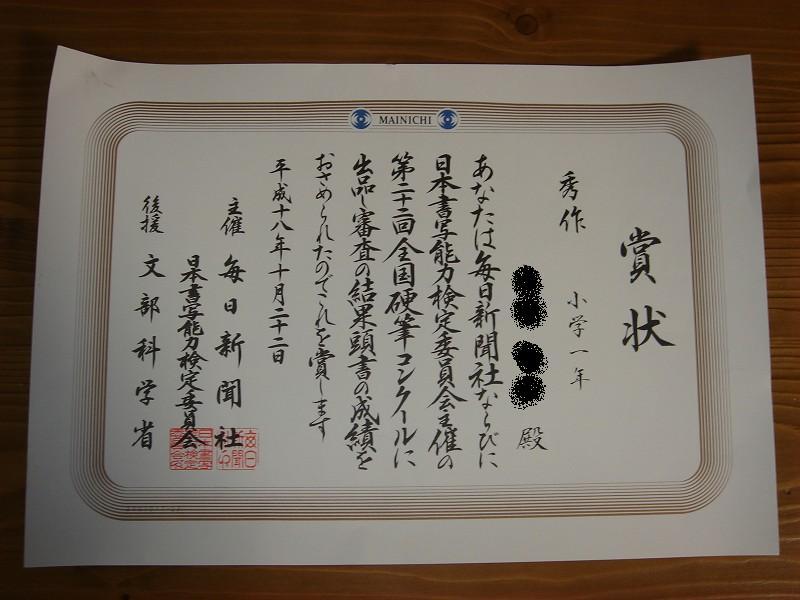 MAINICHI
賞状
秀作
小学一年
殿
あなたは毎日新聞社ならびに
日本書写能力検定委員会主催の
第二十二回全国硬筆コンクールに
出品し審査の結果頭書の成績を
おさめられたのでこれを賞します
平成十八年十月二十二日
主催 毎日新聞社
日本書写能力検定委員会
後援 文部科学省